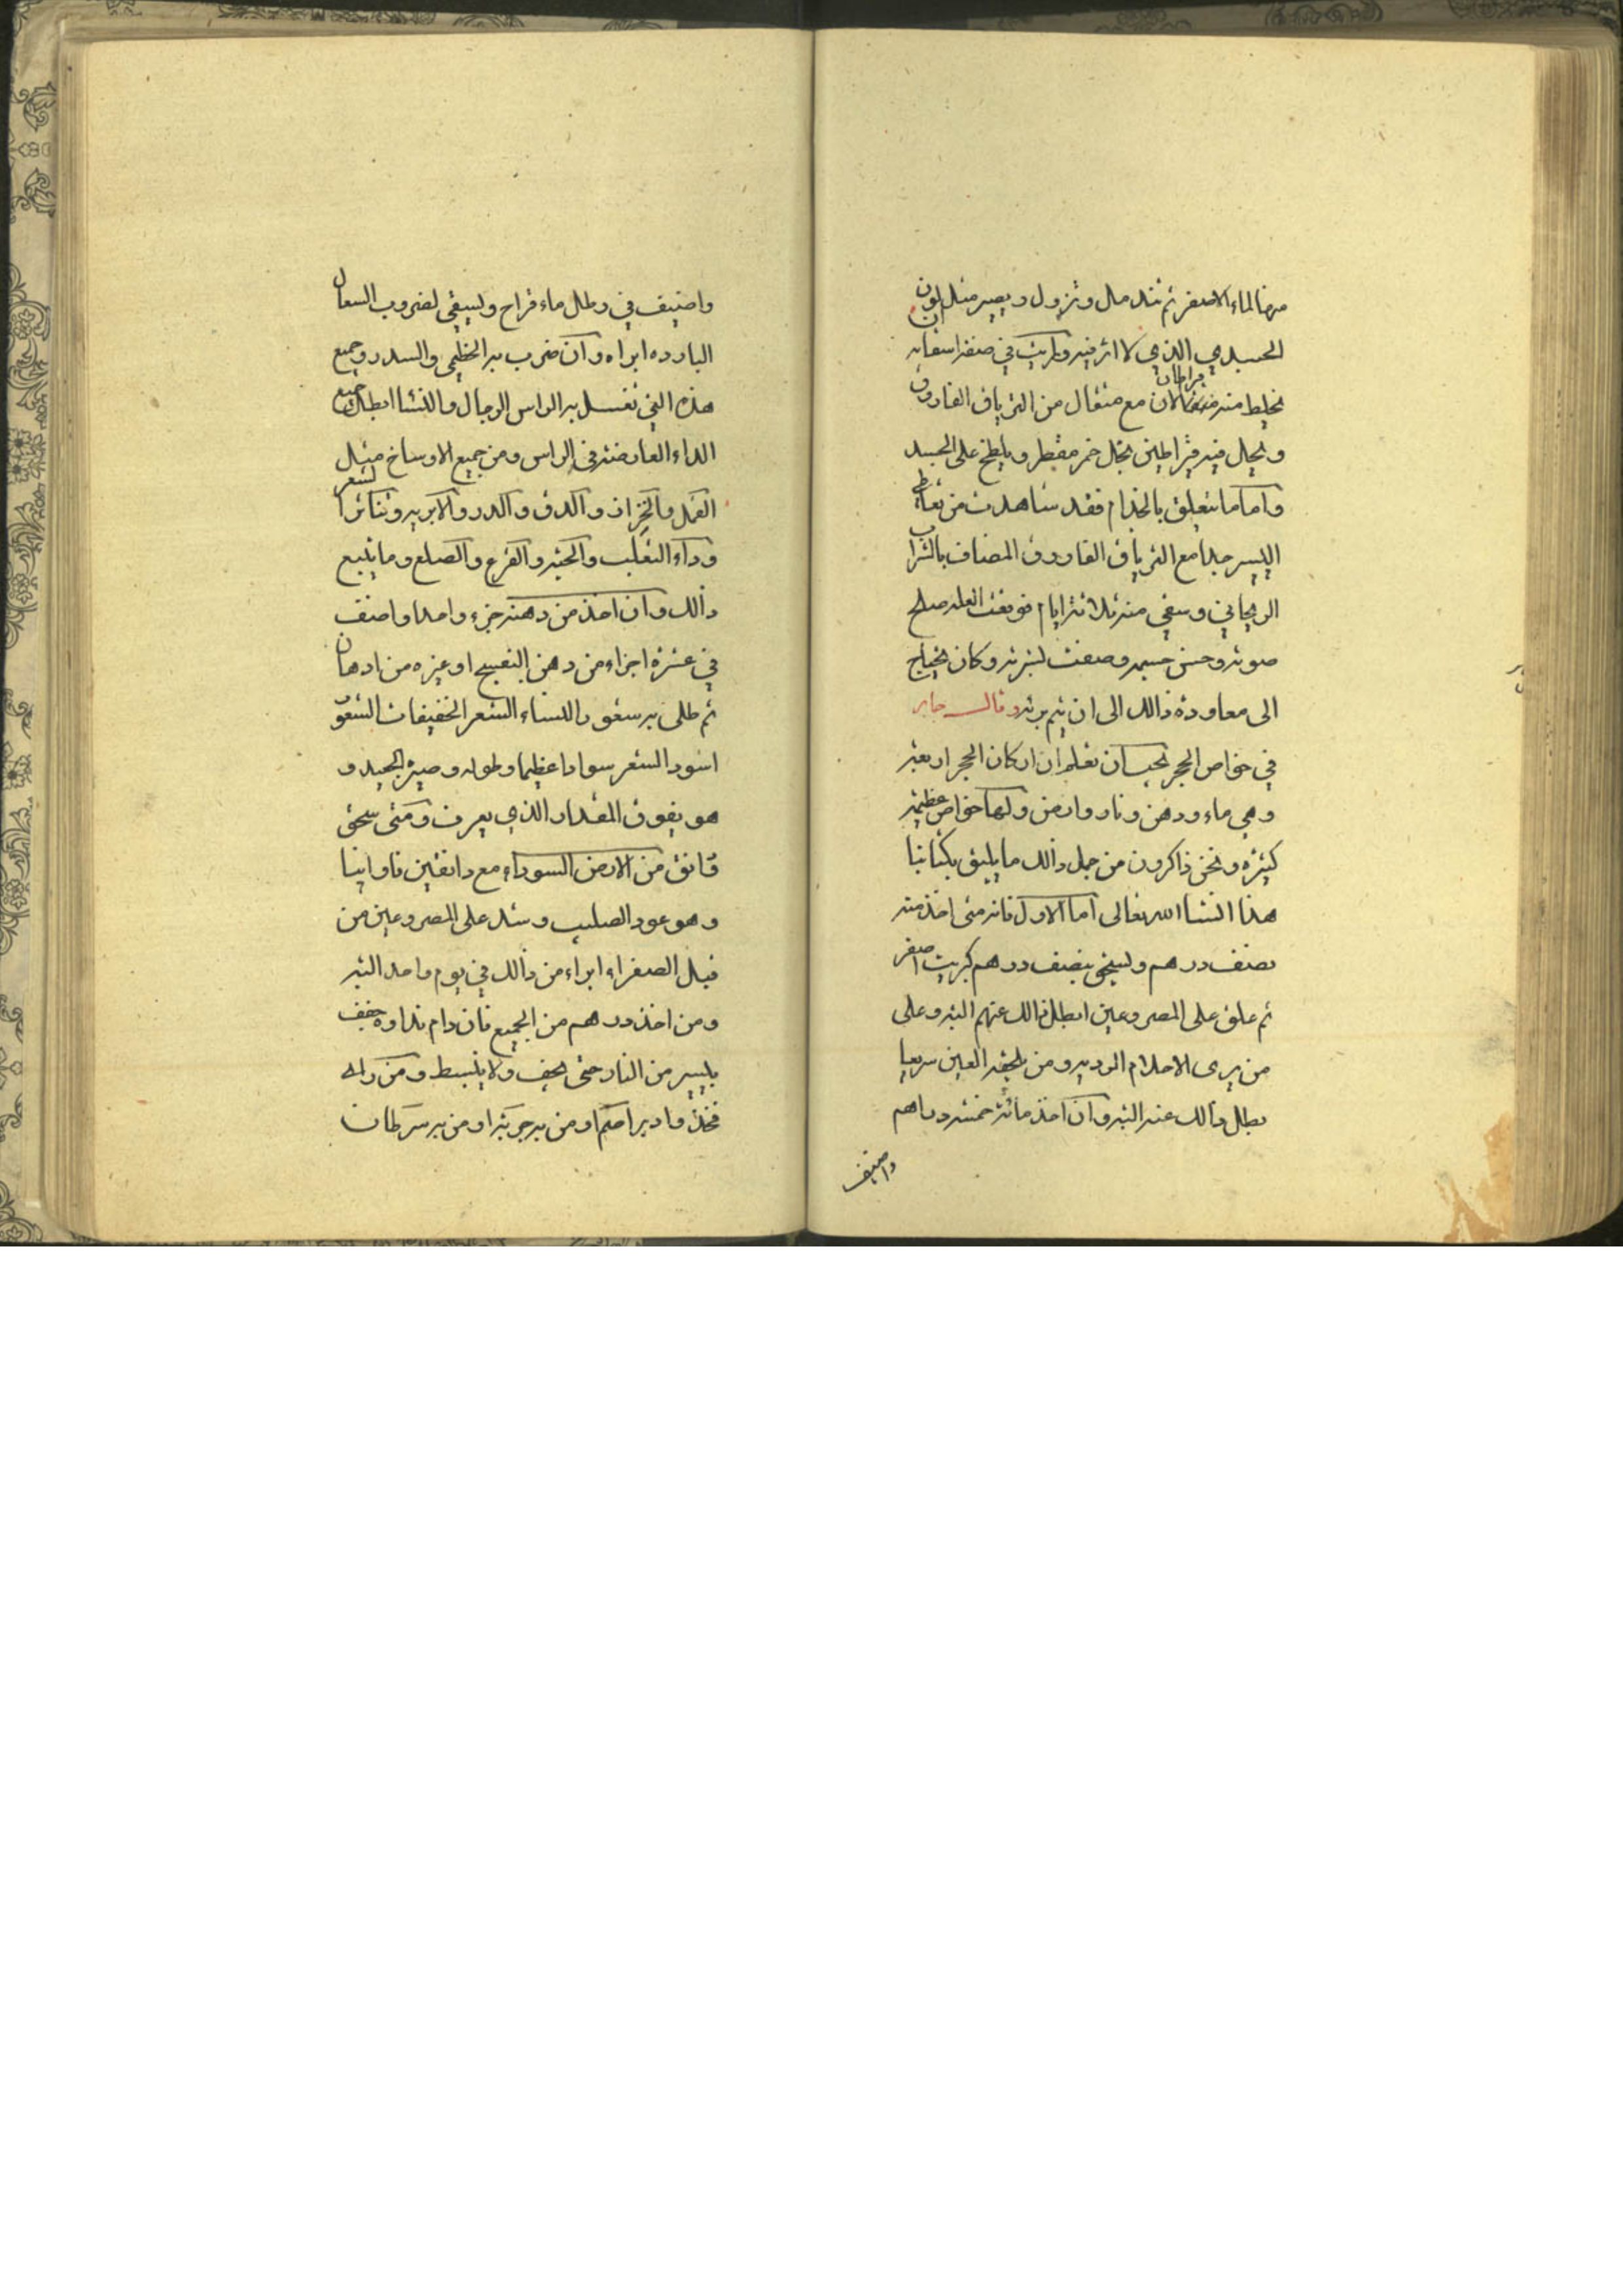 منها الماء الاصفر ثم تندمل وتزول ويصير مثل لون
الجسد الذي لا اثر فيه ورايت في صفة استعماله ان
يخلط منه قيراطان مع مثقال من الترياق الفاروق
ويحل فيه قيراطين بخل خمر مقطر ويلطخ على الجسد
واما ما يتعلق بالجذام فقد شاهدت من تعاطى
اليسير جدا مع الترياق الفاروق المضاف بالشراب
الريحاني وسقي منه ثلاثة ايام فوقفت العلة وصلح
صوته وحسن جسمه وصفت بشرته وكان يحتاج
الى معاودة ذالك الى ان يتم برئه وقال جابر
في خواص الحجر يجب ان تعلم ان اركان الحجر اربعة
وهي ماء ودهن ونار وارض ولها خواص عظيمة
كثيرة ونحن ذاكرون من جل ذالك ما يليق بكتابنا
هذا انشا الله تعالى اما الاول فانه متى اخذ منه
نصف درهم وسحق بنصف درهم كبريت اصفر
ثم علق على المصروعين ابطل ذالك عنهم البتة وعلى
من يرى الاحلام الردية ومن يلحقه العين سريعا
بطل ذالك عنه البتة وان اخذ مائة خمسة دراهم
واضيف
واضيف في رطل ماء قراح وليسقى لضروب السعال
الباردة ابراه وان ضرب به الخطمي والسدر وجميع
هذه التي تغسل به الراس الرجال والنسا ابطل جميع
الداء العارضة في الراس ومن جميع الاوساخ مثل
القمل والحزاز والدق والدرد والابرية وتناثر الشعر
وداء الثعلب والحية والقرع والصلع وما يتبع
ذالك وان اخذ من دهنه جزء واحد واضف
في عشرة اجزاء من دهن البنفسج او غيره من ادهان
ثم طلى به شعور النساء الشعر الخفيفات الشعور
اسود الشعر سوادا عظيما وطوله وصيره الجيد و
هو يفوق المقدار الذي يعرف ومتى سحق
دانق من الارض السوداء مع دانقين فاوانيا
وهو عود الصليب وشد على المصروعين من
قبل الصفراء ابراء من ذالك في يوم واحد البتة
ومن اخذ درهم من الجميع فان دام نداوه خفف
بيسير من النار حتى يجف ولا ينبسط ومن
فخذ وا